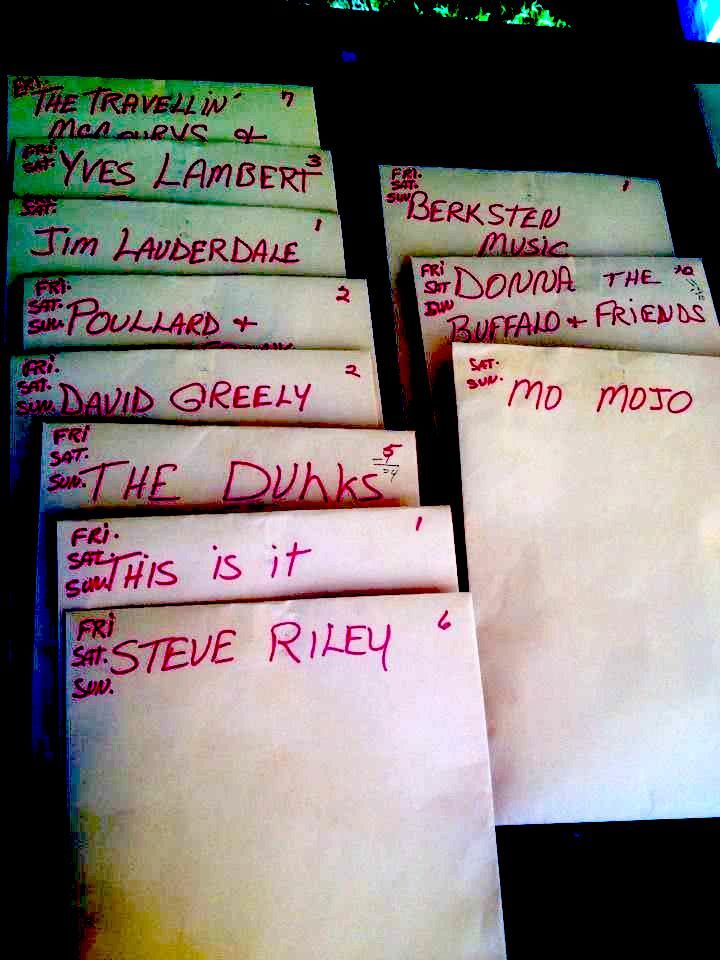 FRI.
THE TRAVELLIN' 7
MCCOURYS &
FRI.
SAT. YVES LAMBERT 3
SAT.
JIM LAUDERDALE 1
FRI.
SAT. 2
SUN. POULLARD +
FRI.
SAT. 2
SUN. DAVID GREELY
FRI
SAT. 5
SUN. THE DUhKS
FRI. 1
SAT.
SUN THIS is it
FRI 6
SAT. STEVE RILEY
SUN.
FRI. 1
SAT.
SUN BERKSTEN
MUSIC
FRI
SAT DONNA THE
SUN BUFFALO + FRiENDS
SAT.
SUN. MO MOJO